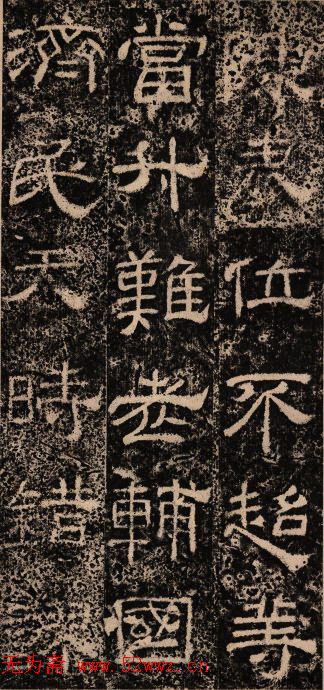 位不超等
當升難老輔國
濟民天時錯
无为斋 www.52wwz.cn